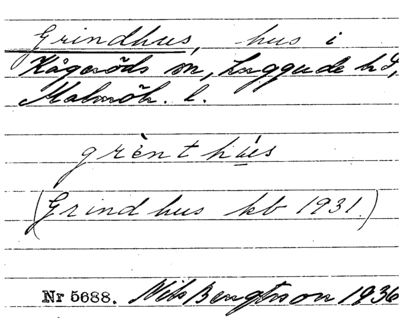 Grindhus, hus i
Kågeröds sn, Luggude hd,
Malmöh. l.
grènthu̲s
(Grindhus kb 1931.)
Nr 5688. Nils Bengtsson 1936